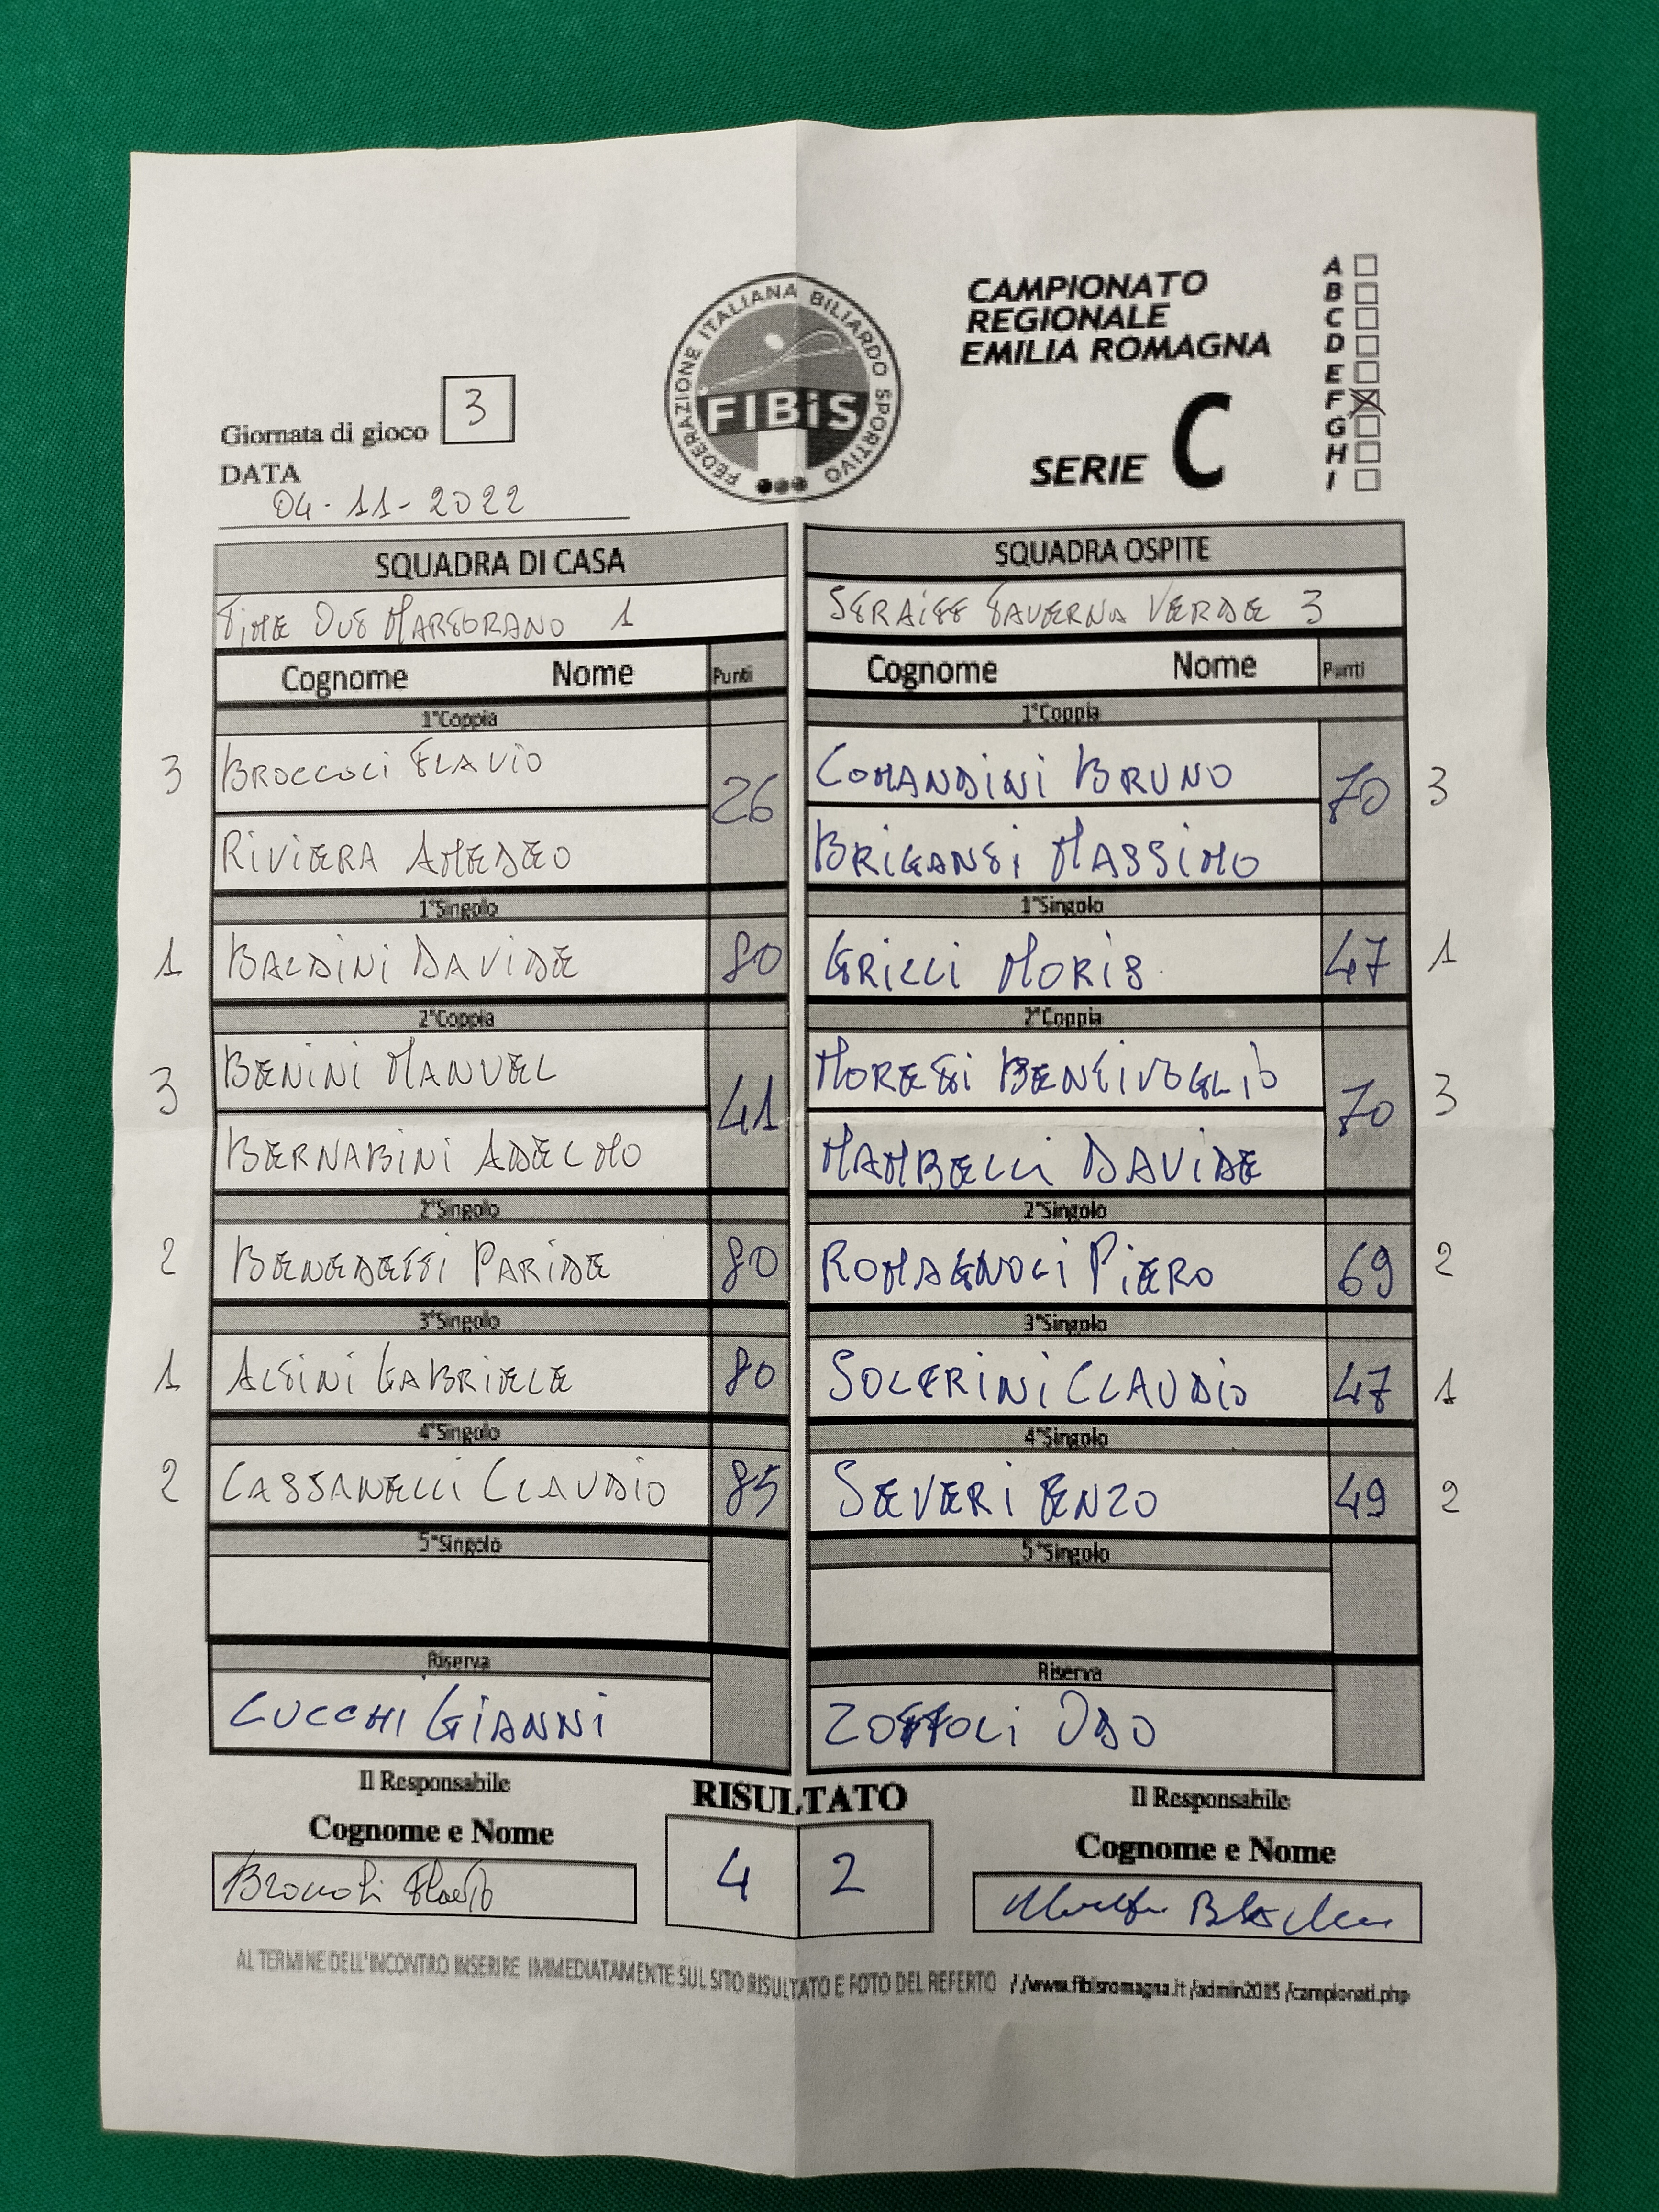 FEDERAZIONE ITALIANA BILIARDO SPORTIVO
FIBiS
CAMPIONATO
REGIONALE
EMILIA ROMAGNA
SERIE C
A
B
C
D
E
F X
G
H
I
Giornata di gioco 3
DATA
04-11-2022
SQUADRA DI CASA
TIME OUT MARTORANO 1
Cognome Nome Punti
1°Coppia
3 BROCCOLI FLAVIO 26
RIVIERA AMEDEO
1°Singolo
1 BALDINI DAVIDE 80
2°Coppia
3 BENINI MANUEL 41
BERNABINI ADELMO
2°Singolo
2 BENEDETTI PARIDE 80
3°Singolo
1 ALTINI GABRIELE 80
4°Singolo
2 CASSANELLI CLAUDIO 85
5°Singolo
Riserva
LUCCHI GIANNI
Il Responsabile
Cognome e Nome
Broccoli Flavio
SQUADRA OSPITE
TAVERNA VERDE 3
Cognome Nome Punti
1°Coppia
COMANDINI BRUNO 70 3
BRIGANTI MASSIMO
1°Singolo
GRILLI MORIS 47 1
2°Coppia
MORETTI BENTIVOGLIO 70 3
MAMBELLI DAVIDE
2°Singolo
ROMAGNOLI PIERO 69 2
3°Singolo
SOLFRINI CLAUDIO 47 1
4°Singolo
SEVERI ENZO 49 2
5°Singolo
Riserva
ZOFFOLI ODO
Il Responsabile
Cognome e Nome
RISULTATO
4 2
AL TERMINE DELL'INCONTRO INSERIRE IMMEDIATAMENTE SUL SITO RISULTATO E FOTO DEL REFERTO //www.fibisromagna.it /admin2015 /campionati.php